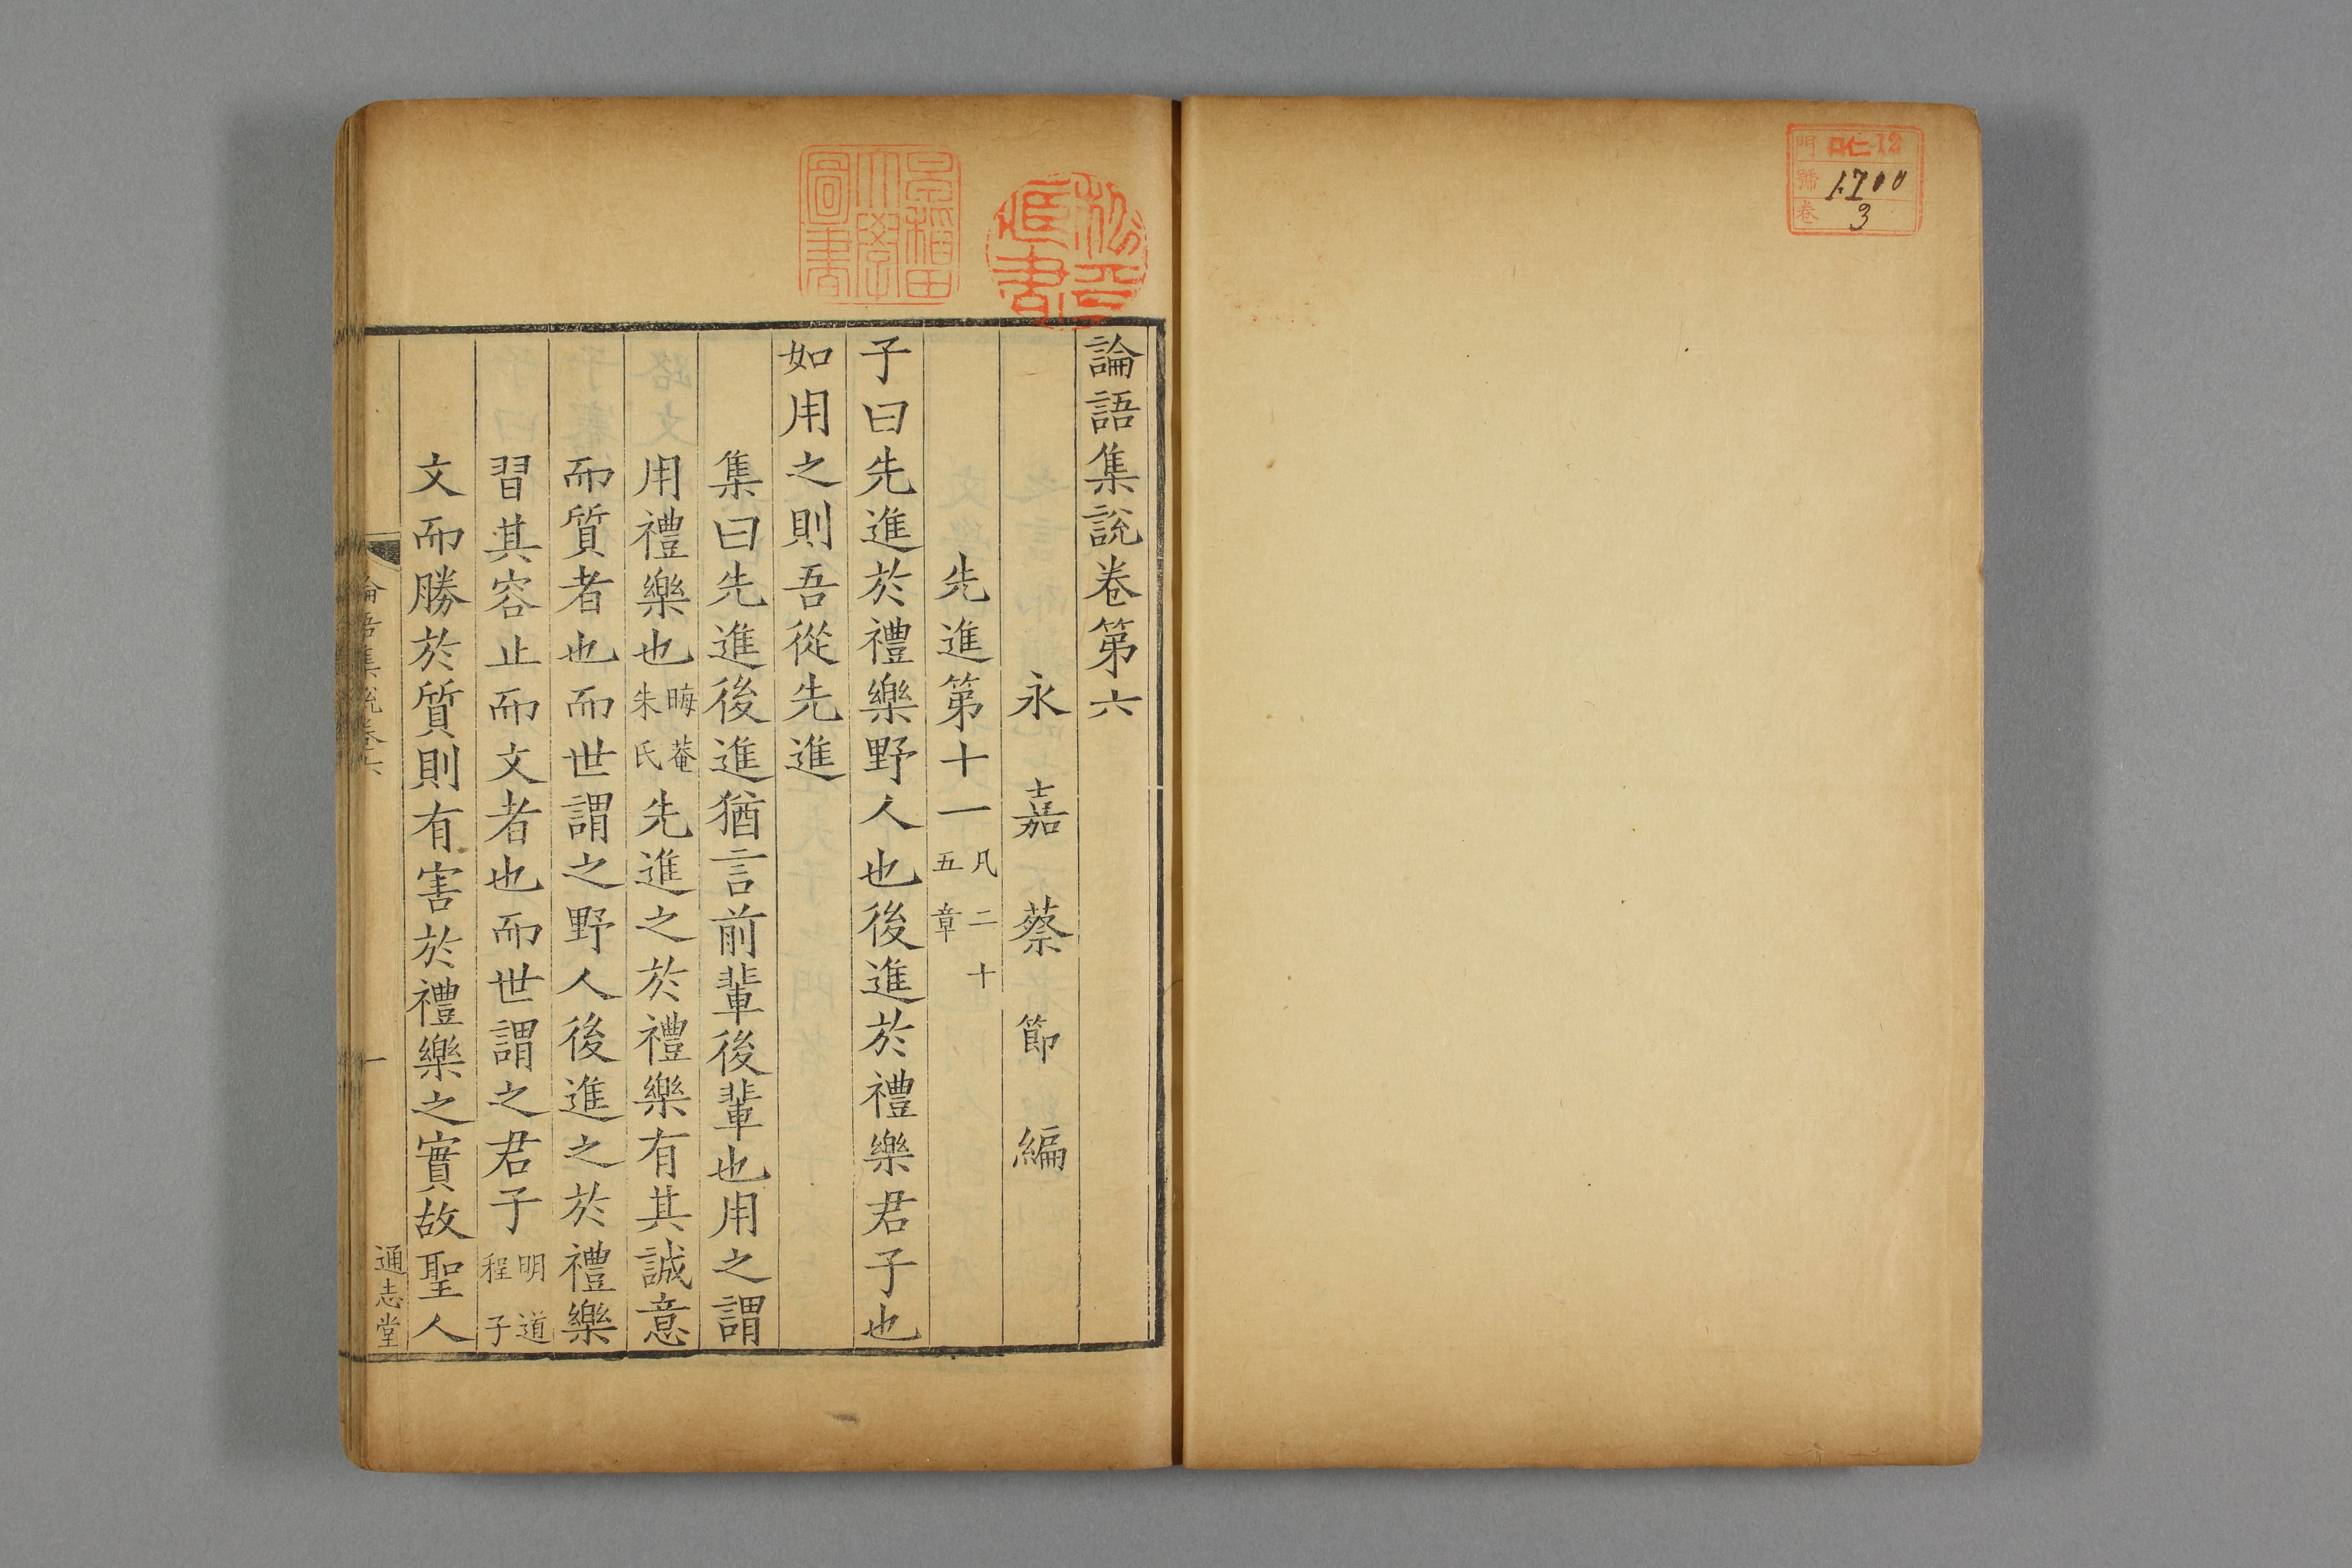 門 ロ仁12
號 1700
卷 3
早稻田
大學
圖書
論語集說卷第六
永嘉蔡節編
先進第十一凡二十五章
子曰先進於禮樂野人也後進於禮樂君子也
如用之則吾從先進
集曰先進後進猶言前輩後輩也用之謂
用禮樂也晦菴朱氏先進之於禮樂有其誠意
而質者也而世謂之野人後進之於禮樂
習其容止而文者也而世謂之君子明道程子
文而勝於質則有害於禮樂之實故聖人
論語集說卷六
一
通志堂